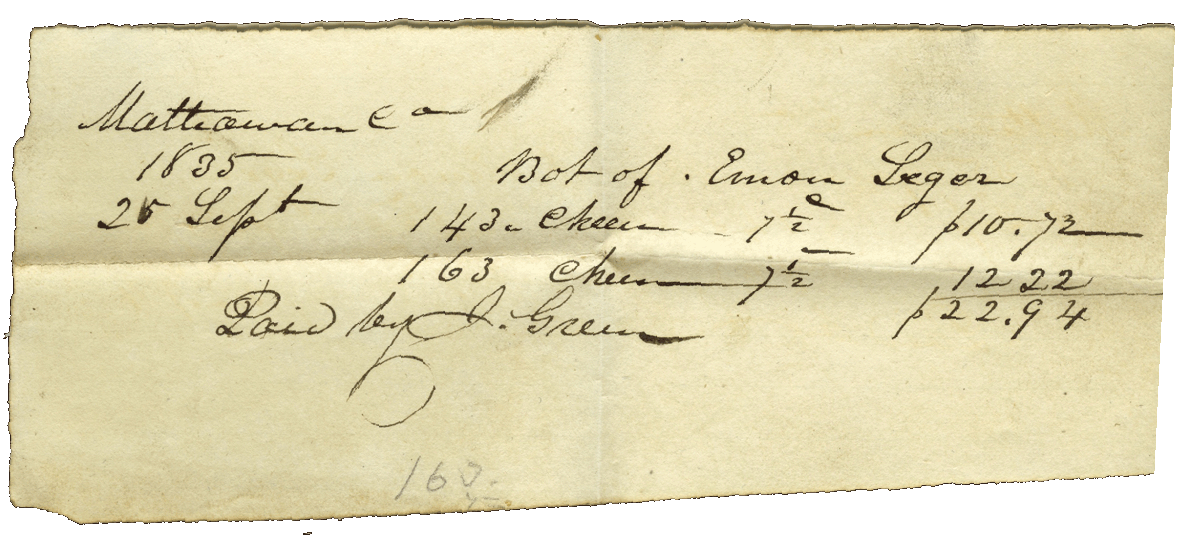 Matteawan Co
1835 Bot of . Emon Seger
25 Sept 143 " Cheese 7½ c $10.72
163 Cheese 7½ 12 22
$22.94
Paid by J. Green
160